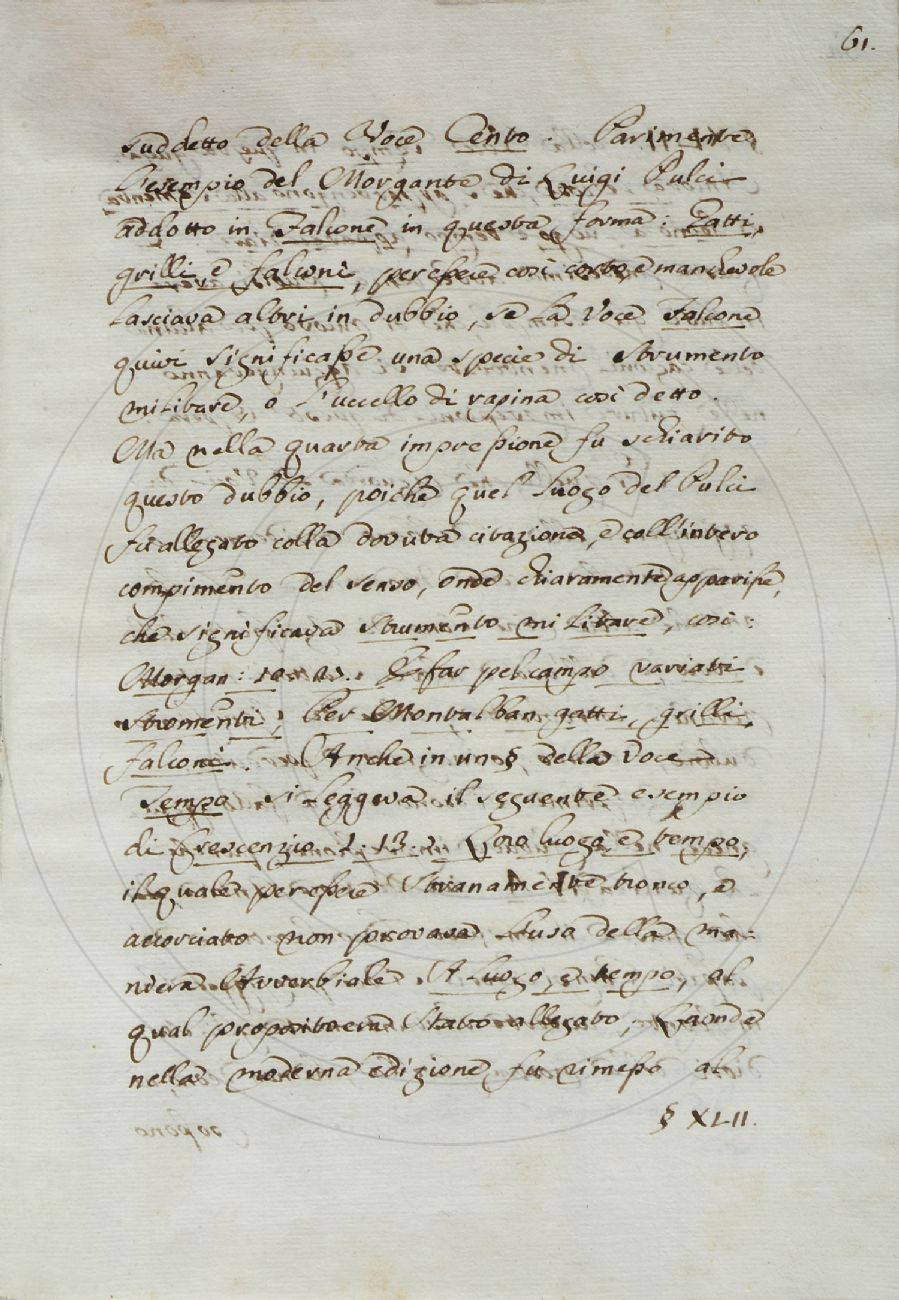 61.
suddetto della Voce Cento. Parimente
l'esempio del Morgante di Luigi Pulci
addotto in Falcone in questa forma: Gatti,
grilli, e falconi, per essere così corto, e manchevole
lasciava altri in dubbio, se la Voce Falcone
quivi significasse una specie di strumento
militare, o l'uccello di rapina così detto.
Ma nella quarta impressione fu schiarito
questo dubbio, poichè quel luogo del Pulci
fu allegato colla dovuta citazione, e coll'intero
compimento del senso, onde chiaramente apparisse,
che significava strumento militare, così:
Morgan: E far pel campo variati
stromenti, Per Montalban gatti, grilli,
Falconi. Anche in un § della Voce
Tempo si leggeva il seguente esempio
di Crescenzio luogo, e tempo,
il quale per essere stranamente tronco, e
accorciato non provava l'uso della ma:
niera Avverbiale A luogo, e tempo, al
qual proposito era stato allegato; Laonde
nella moderna edizione fu rimesso al
§ XLII.